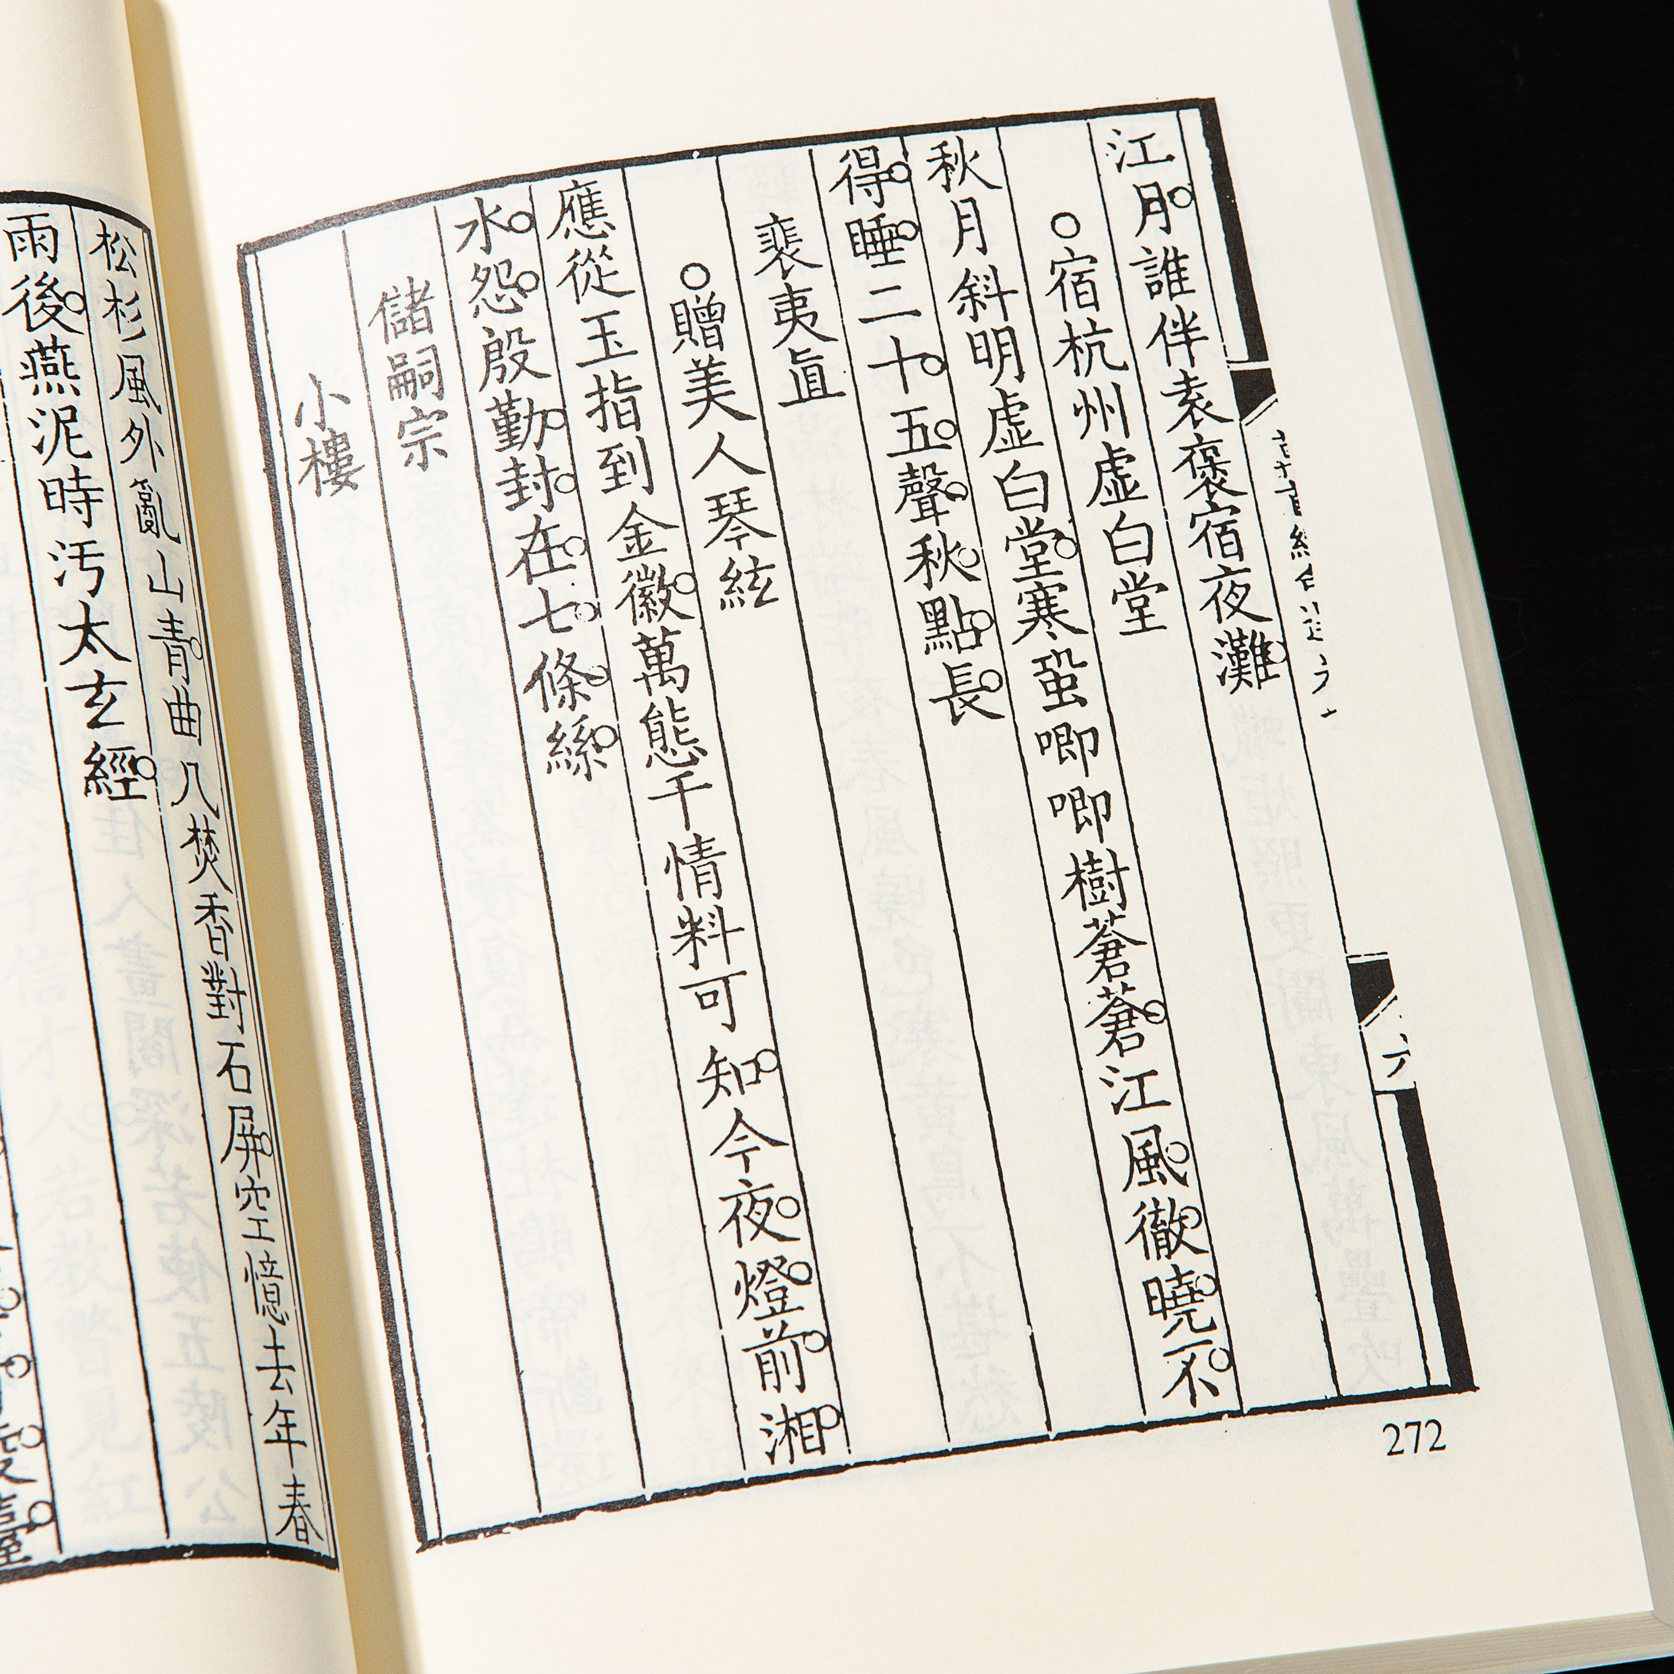 江月誰伴袁褒宿夜灘
○宿杭州虛白堂
秋月斜明虛白堂寒蛩唧唧樹蒼蒼江風徹曉不
得睡二十五聲秋點長
裴夷直
○贈美人琴絃
應從玉指到金徽萬態千情料可知今夜燈前湘
水怨殷勤封在七條絲
儲嗣宗
小樓
272
松杉風外亂山青曲几焚香對石屏空憶去年春
雨後燕泥時汚太玄經